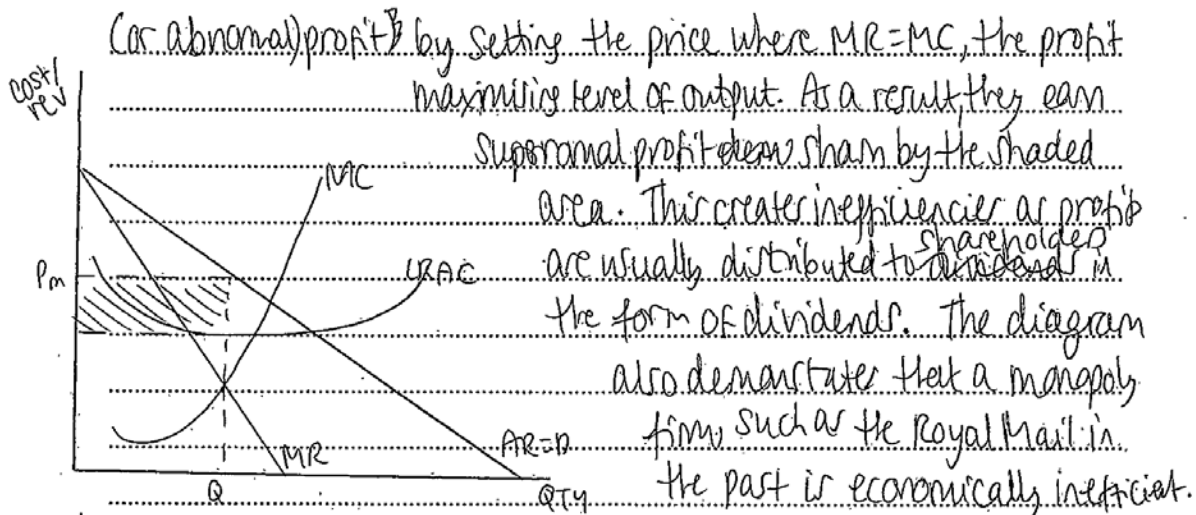 (or abnormal) profits by setting the price where MR=MC, the profit
cost/
rev
maximising level of output. As a result, they earn
supernormal profit shown by the shaded
MC
area. This creates inefficiencies as profits
shareholders
are usually distributed to dividends in
Pm
LRAC
the form of dividends. The diagram
also demonstrates that a monopoly
firm such as the Royal Mail in
MR
AR=D
the past is economically inefficient.
Q
QTY